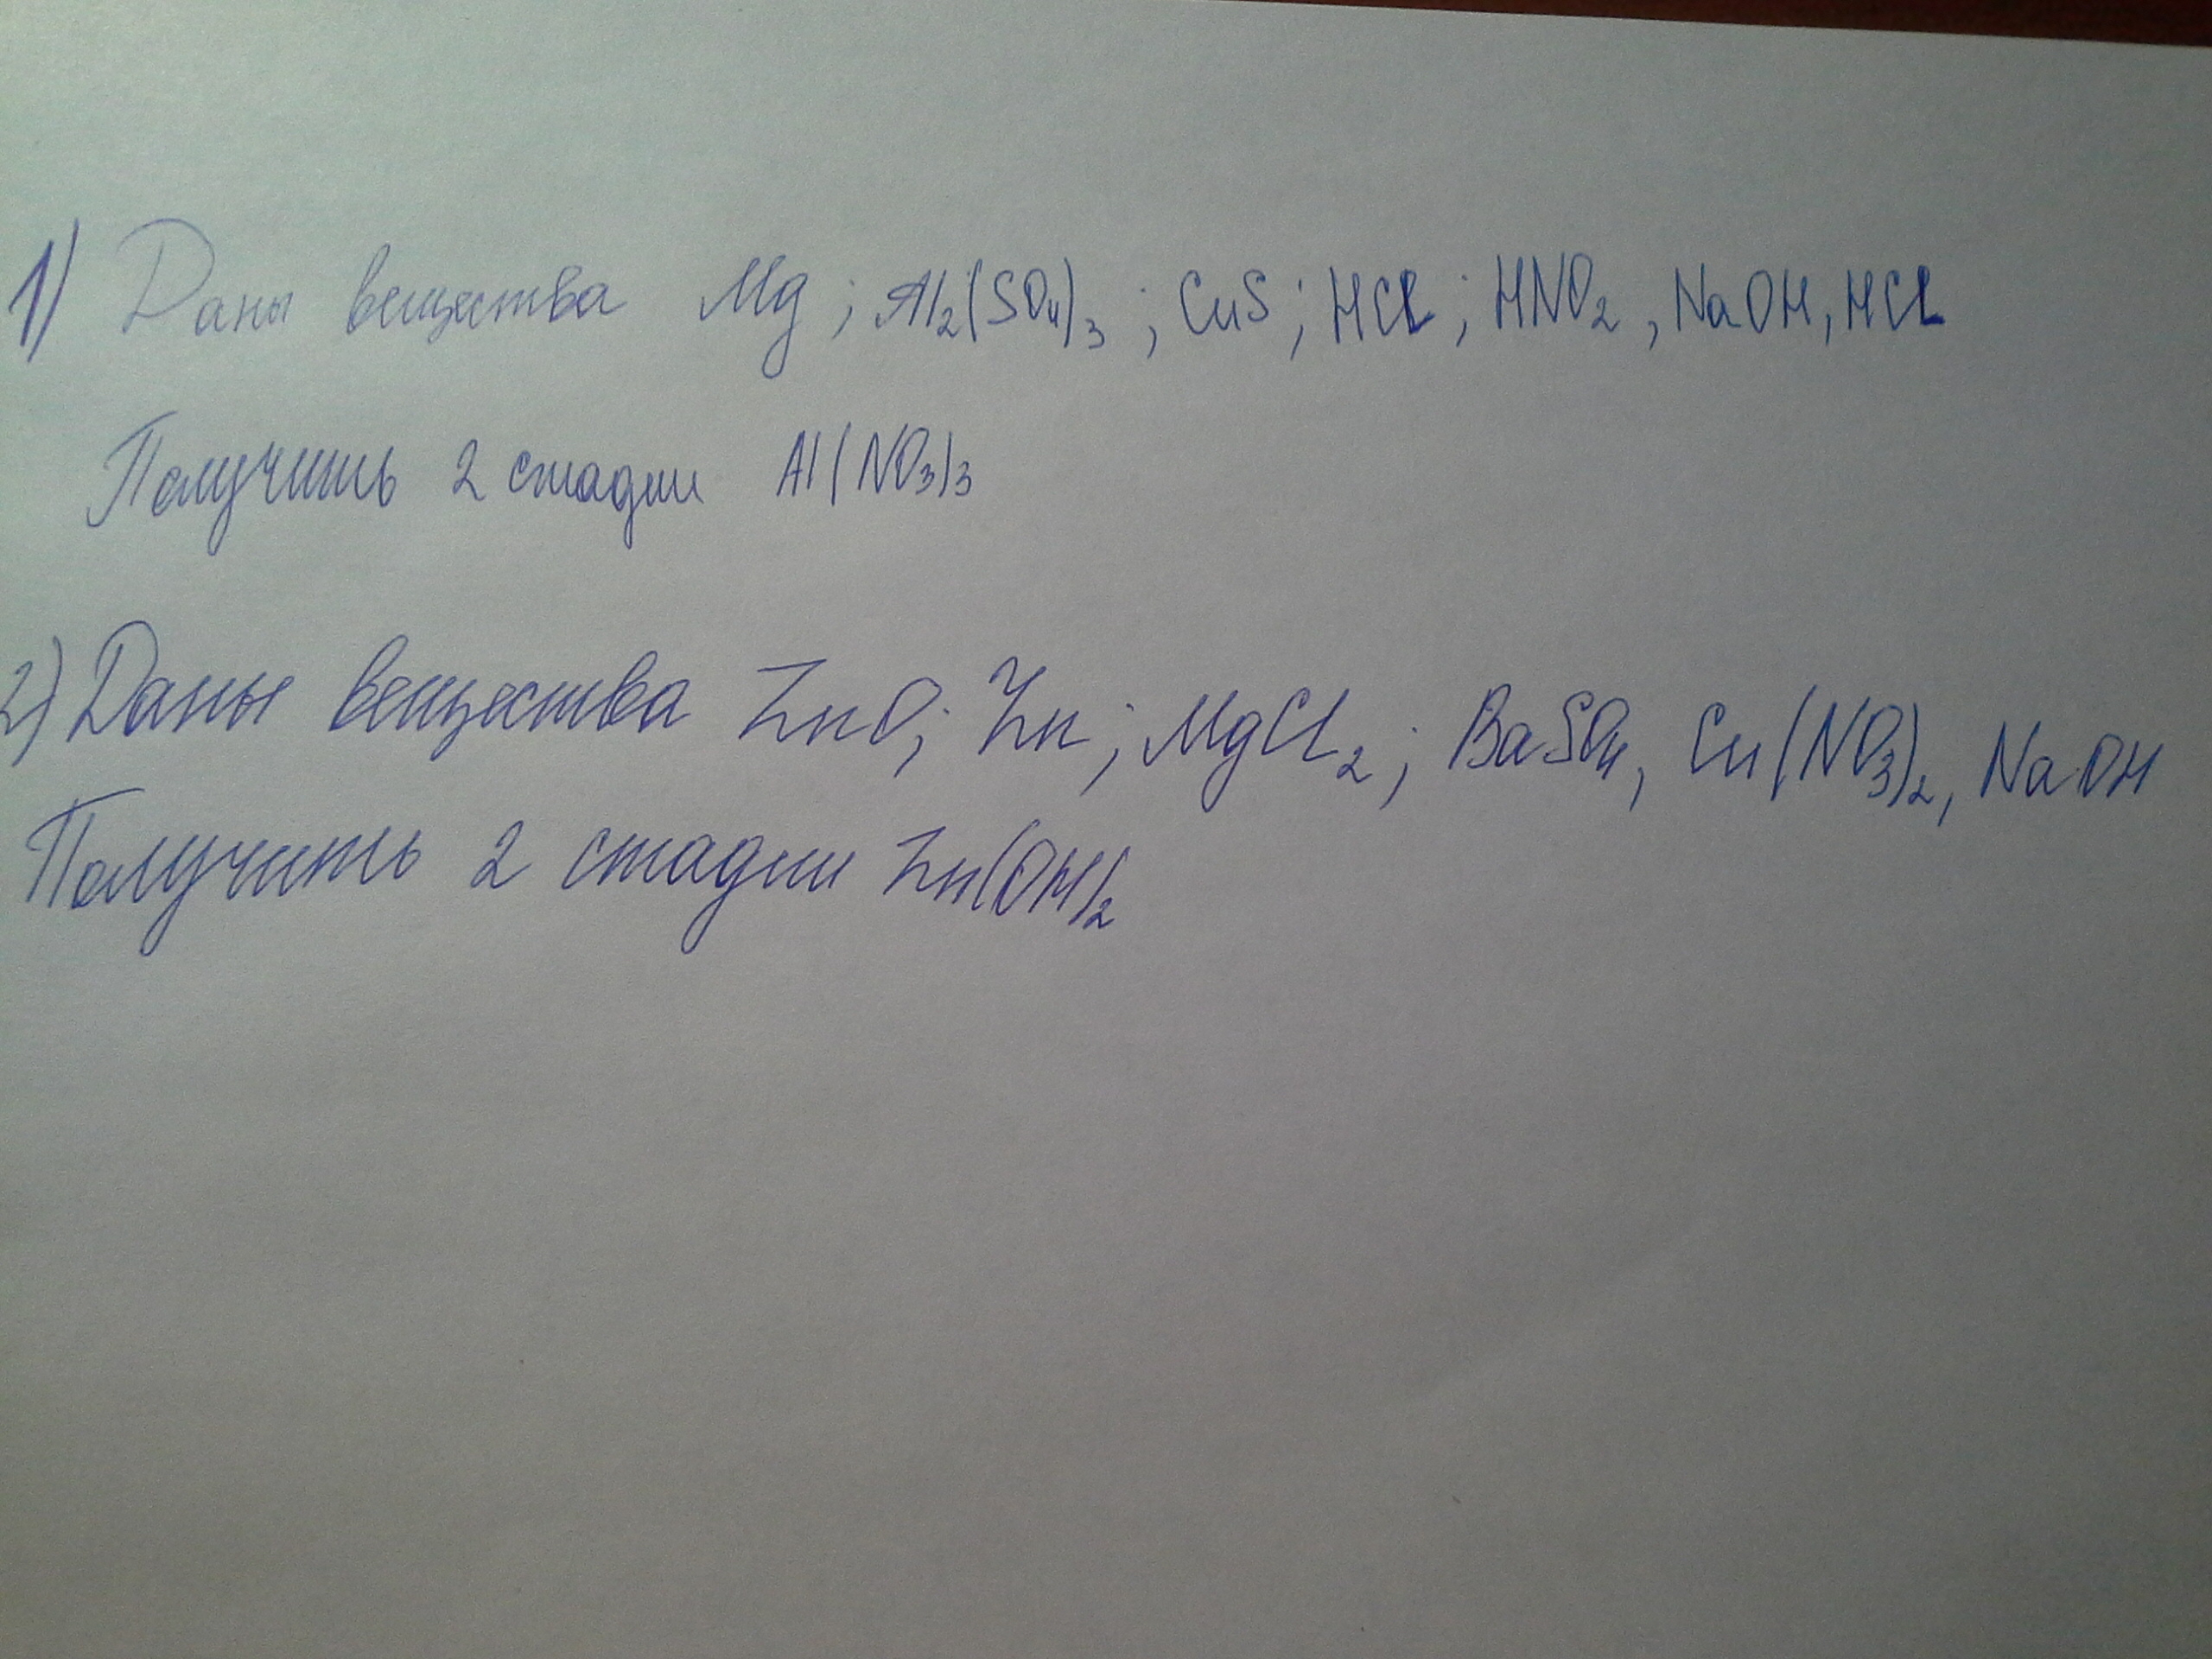 1) Даны вещества Mg; Al₂(SO₄)₃; CuS; HCl; HNO₂, NaOH, HCl
Получить 2 стадии Al(NO₃)₃
2) Даны вещества ZnO; Zn; MgCl₂; BaSO₄, Cu(NO₃)₂, NaOH
Получить 2 стадии Zn(OH)₂